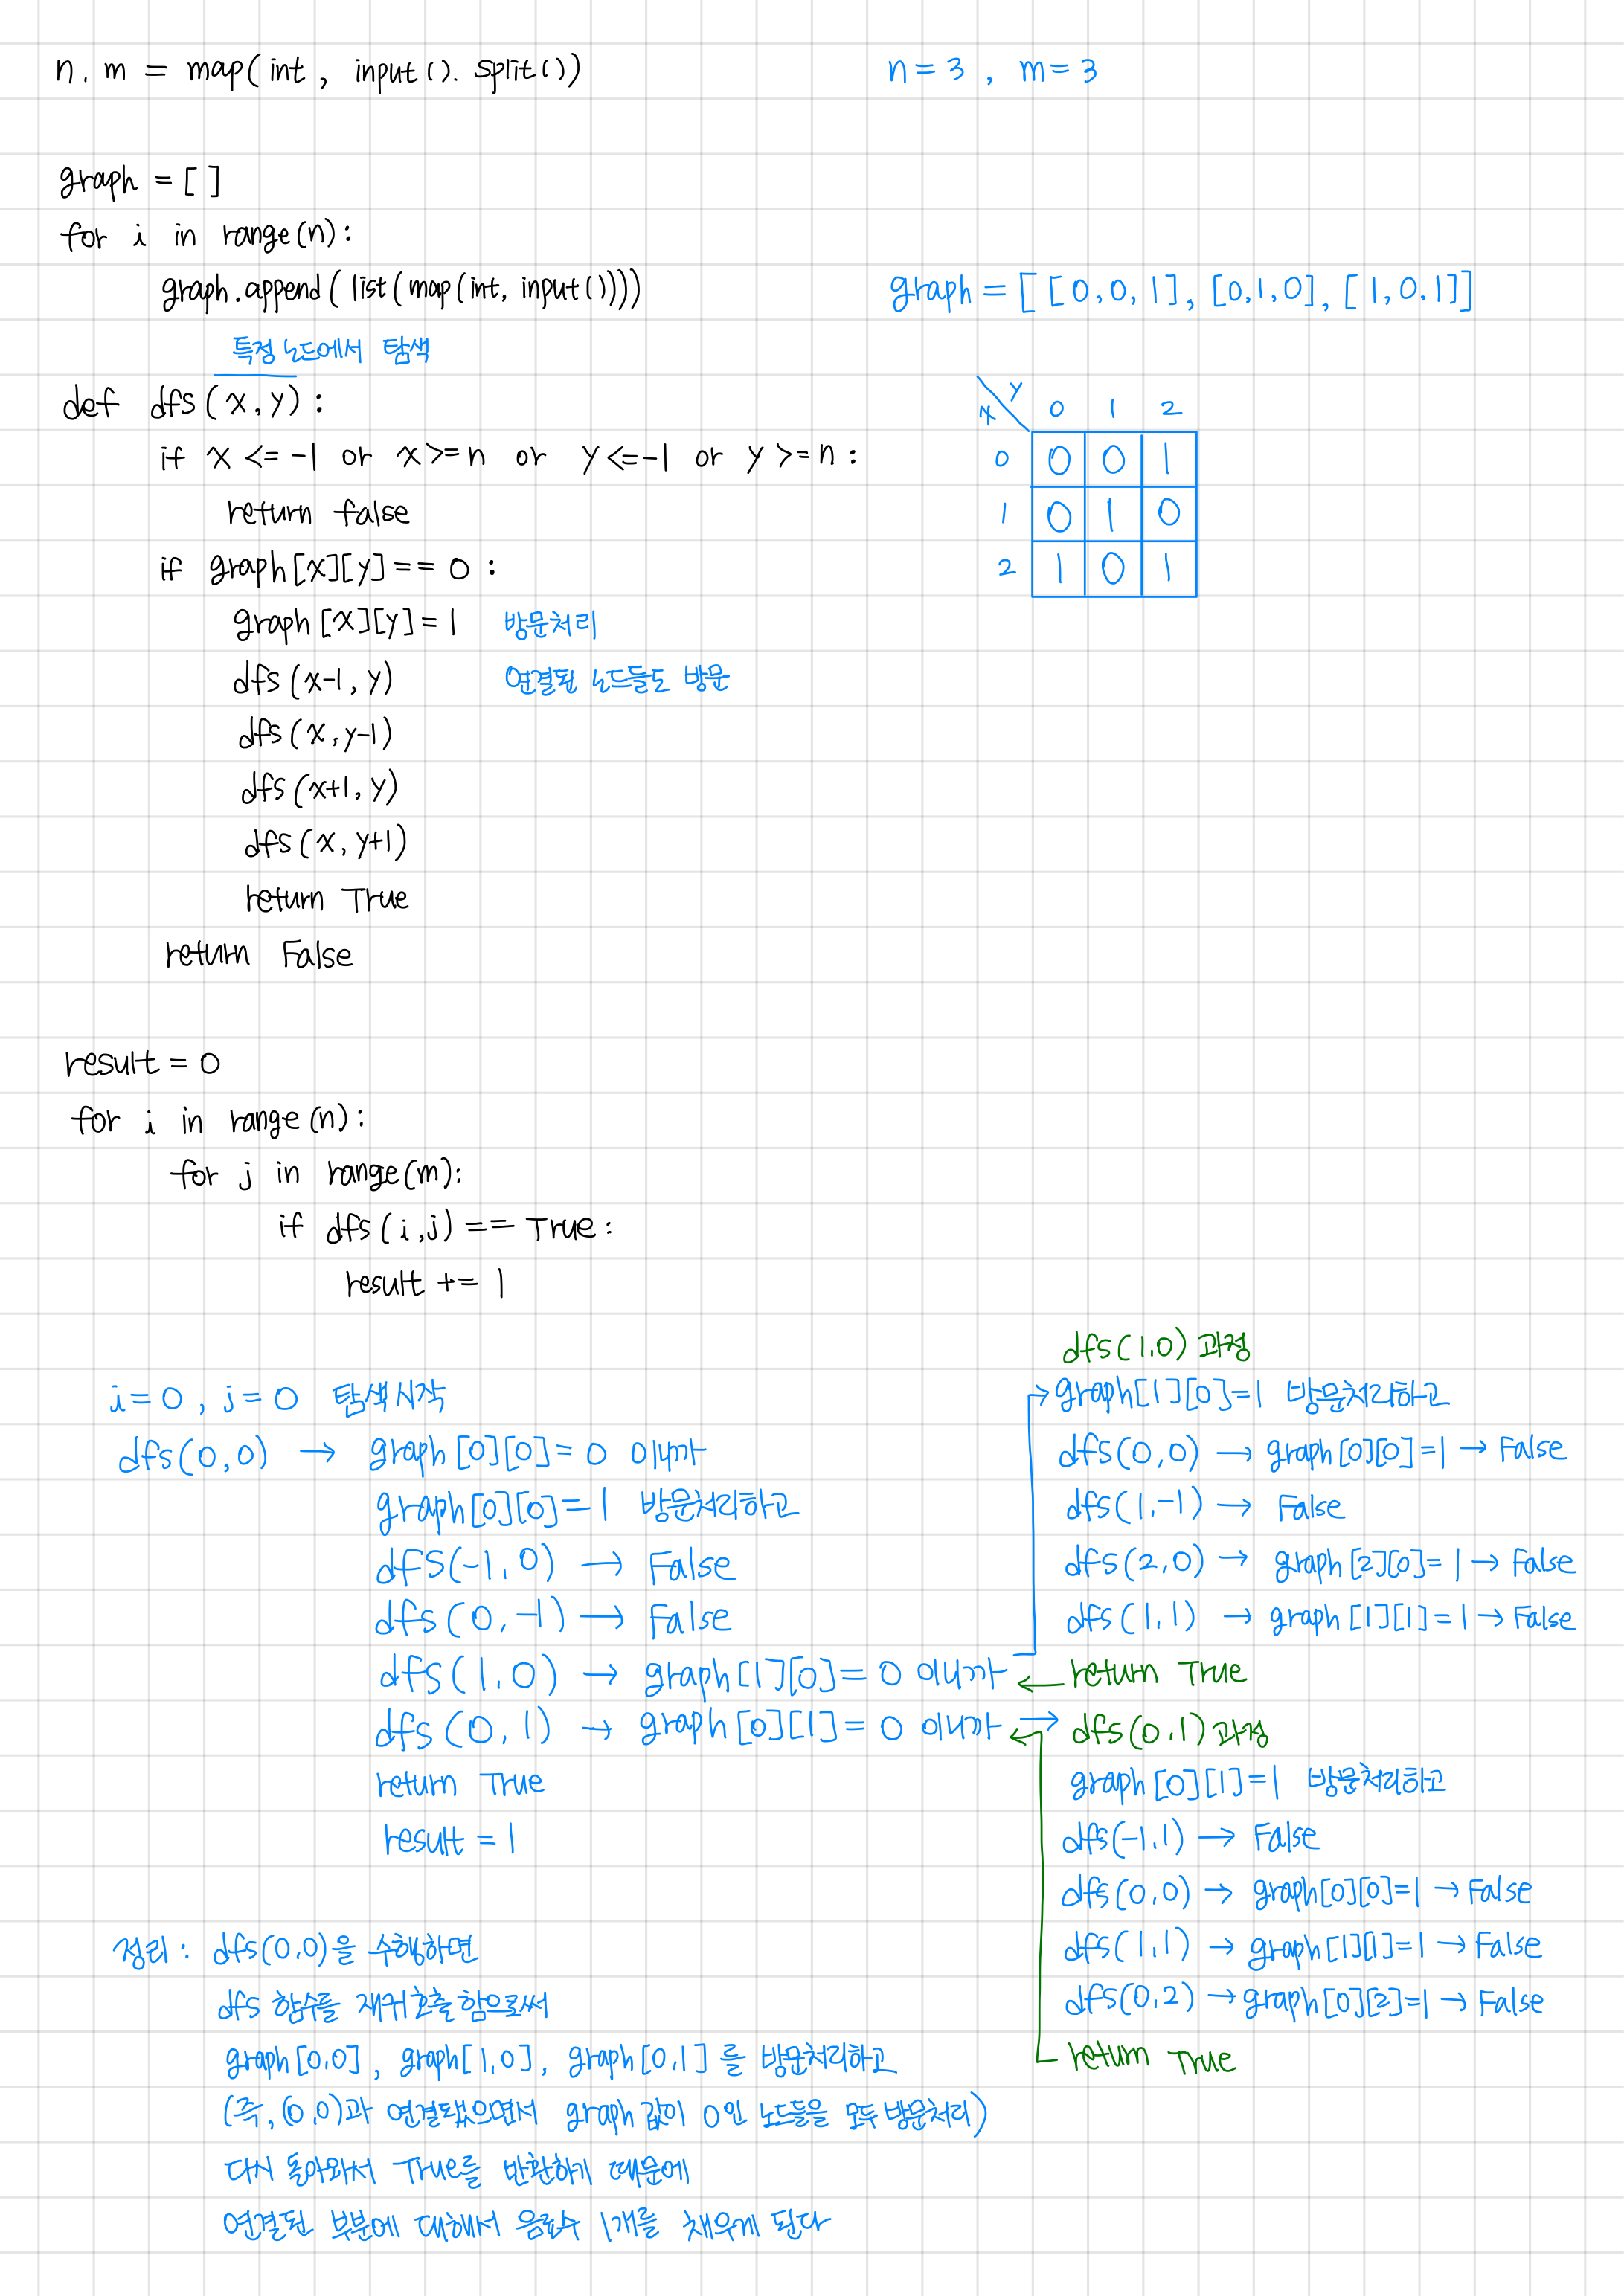 n. m = map(int, input(). split())
n=3, m=3
graph = [ ]
for i in range(n):
graph.append(list(map(int, input())))
graph = [[0,0,1], [0,1,0], [1,0,1]]
특정 노드에서 탐색
def dfs(x,y):
if x <= -1 or x >= n or y <= -1 or y >= n:
return false
if graph[x][y] == 0:
graph[x][y] = 1 방문처리
dfs(x-1, y) 연결된 노드들도 방문
dfs(x, y-1)
dfs(x+1, y)
dfs(x, y+1)
return True
return False
y
x 0 1 2
0 0 0 1
1 0 1 0
2 1 0 1
result = 0
for i in range(n):
for j in range(m):
if dfs(i,j) == True:
result += 1
i=0, j=0 탐색시작
dfs(0,0) → graph[0][0] = 0 이니까
graph[0][0] = 1 방문처리하고
dfs(-1,0) → False
dfs(0,-1) → False
dfs(1,0) → graph[1][0] = 0 이니까
dfs(0,1) → graph[0][1] = 0 이니까 →
return True
result = 1
dfs(1.0) 과정
graph[1][0]=1 방문처리하고
dfs(0,0) → graph[0][0]=1 → False
dfs(1,-1) → False
dfs(2,0) → graph[2][0]=1 → False
dfs(1,1) → graph[1][1]=1 → False
return True
dfs(0.1) 과정
graph[0][1]=1 방문처리하고
dfs(-1,1) → False
dfs(0,0) → graph[0][0]=1 → False
dfs(1,1) → graph[1][1]=1 → False
dfs(0,2) → graph[0][2]=1 → False
return True
정리: dfs(0.0)을 수행하면
dfs 함수를 재귀호출함으로써
graph[0,0], graph[1,0], graph[0,1]를 방문처리하고
(즉, (0,0)과 연결됐으면서 graph 값이 0인 노드들을 모두 방문처리)
다시 돌아와서 True를 반환하기 때문에
연결된 부분에 대해서 음료수 1개를 채우게 된다